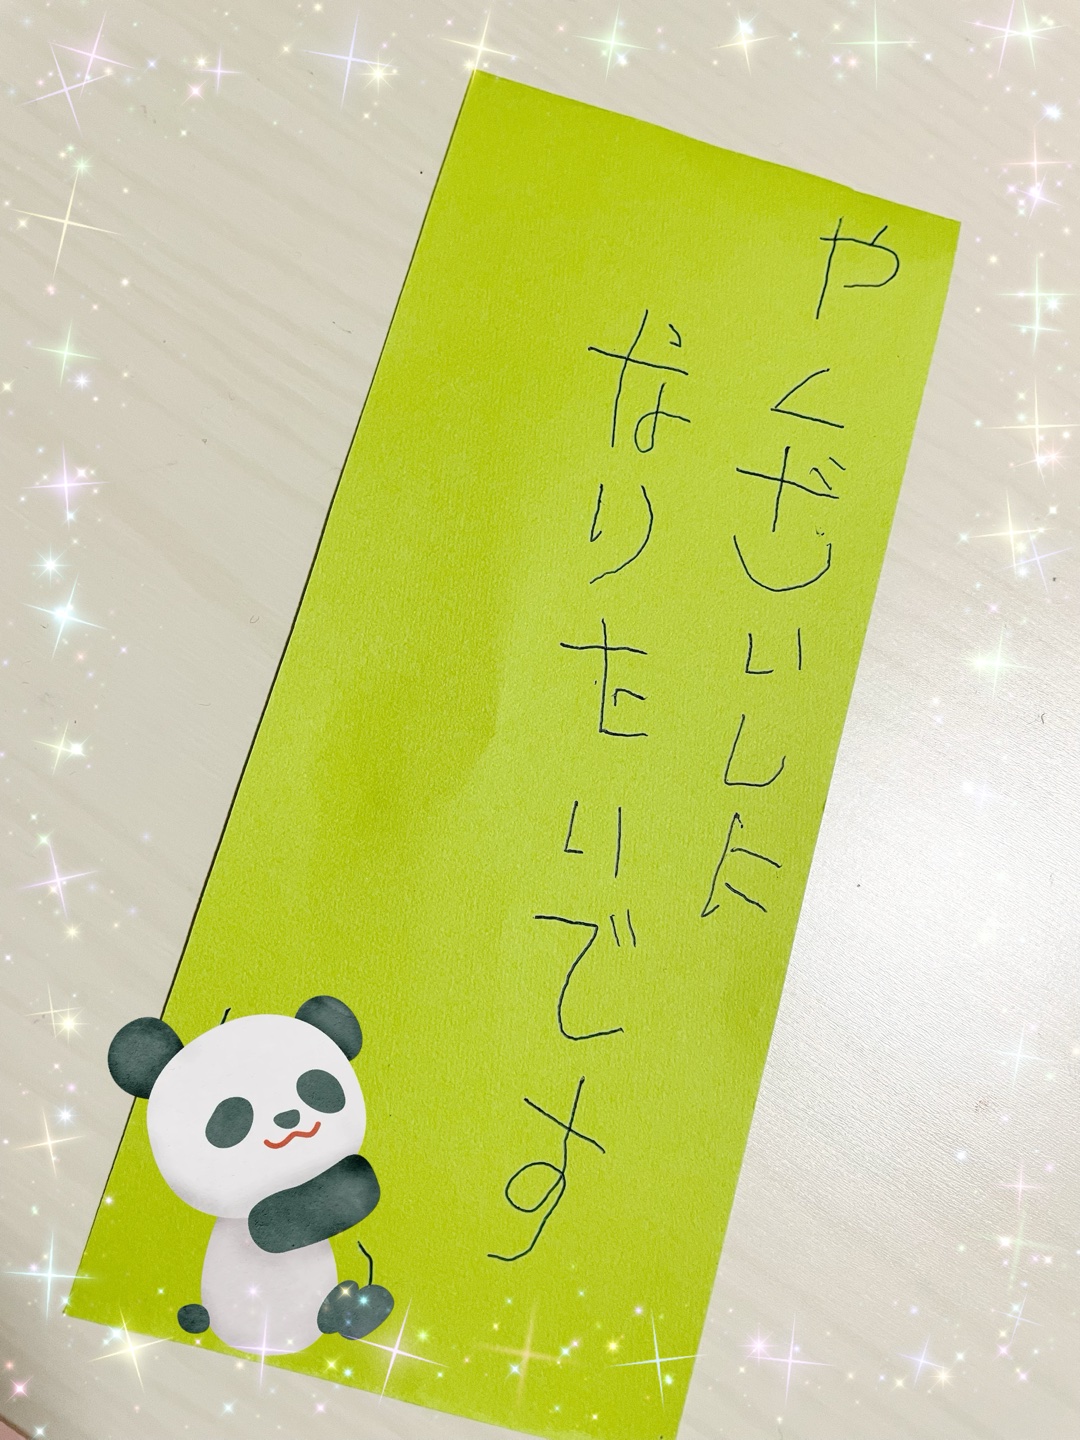 やくざいしに
なりたいです